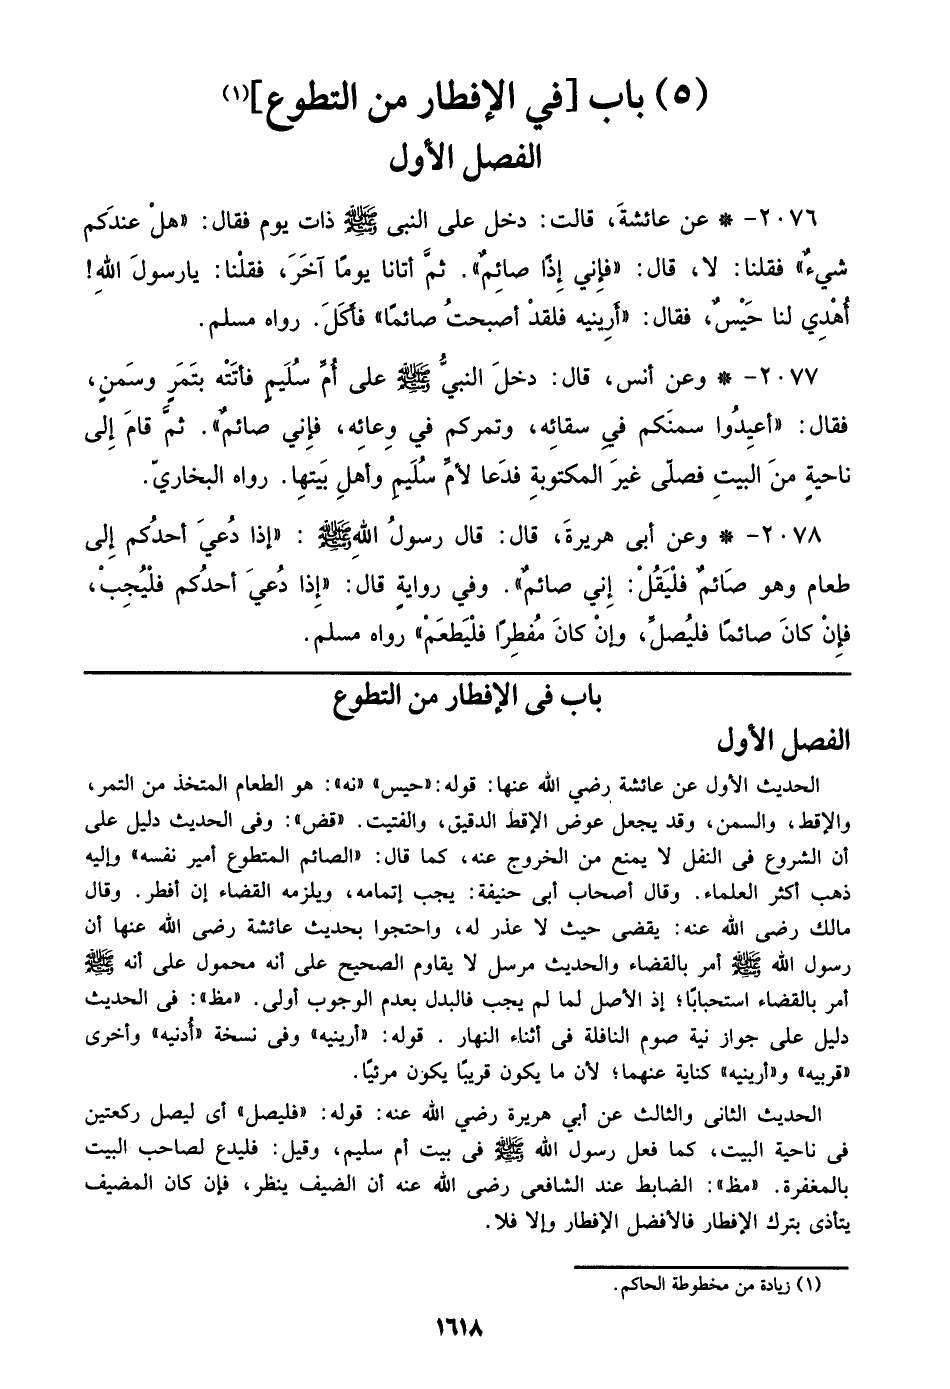 (٥) باب [في الإفطار من التطوع](١)
الفصل الأول
٢٠٧٦- * عن عائشةَ، قالت: دخل على النبى ﷺ ذات يوم فقال: «هلْ عندَكم
شيءٌ» فقلنا: لا، قال: «فإِني إِذًا صائِمٌ». ثمَّ أتانا يومًا آخَرَ، فقلْنا: يارسولَ اللهِ!
أُهْدِي لنا حَيْسٌ، فقال: «أَرِينِيه فلقدْ أصبحتُ صائمًا» فأكَلَ. رواه مسلم.
٢٠٧٧- * وعن أنس، قال: دخلَ النبيُّ ﷺ على أُمِّ سُلَيمٍ فأتَتْه بتَمَرٍ وسَمنٍ،
فقال: «أعِيدُوا سمنَكم في سقائِه، وتمركم في وِعائِه، فإِني صائمٌ». ثمَّ قامَ إِلى
ناحيةٍ منَ البيتِ فصلّى غيرَ المكتوبةِ فدَعا لأمِّ سُلَيمٍ وأهلِ بَيتِها. رواه البخاريّ.
٢٠٧٨- * وعن أبى هريرةَ، قال: قال رسولُ اللهِ ﷺ : «إذا دُعيَ أحدُكم إِلى
طعام وهو صَائمٌ فلْيَقُلْ: إِني صائمٌ». وفي روايةٍ قال: «إِذا دُعيَ أحدُكم فلْيُجِبْ،
فإِنْ كانَ صائمًا فليُصلِّ، وإنْ كانَ مُفطِرًا فليَطعَمْ» رواه مسلم.
باب فى الإفطار من التطوع
الفصل الأول
الحديث الأول عن عائشة رضي الله عنها: قوله:«حيس» «نه»: هو الطعام المتخذ من التمر،
والإقط، والسمن، وقد يجعل عوض الإقط الدقيق، والفتيت. «قض»: وفى الحديث دليل على
أن الشروع فى النفل لا يمنع من الخروج عنه، كما قال: «الصائم المتطوع أمير نفسه» وإليه
ذهب أكثر العلماء. وقال أصحاب أبى حنيفة: يجب إتمامه، ويلزمه القضاء إن أفطر. وقال
مالك رضى الله عنه: يقضى حيث لا عذر له، واحتجوا بحديث عائشة رضى الله عنها أن
رسول الله ﷺ أمر بالقضاء والحديث مرسل لا يقاوم الصحيح على أنه محمول على أنه ﷺ
أمر بالقضاء استحبابًا؛ إذ الأصل لما لم يجب فالبدل بعدم الوجوب أولى. «مظ»: فى الحديث
دليل على جواز نية صوم النافلة فى أثناء النهار . قوله: «أرينيه» وفى نسخة «أُدنيه» وأخرى
«قربيه» و«أرينيه» كناية عنهما؛ لأن ما يكون قريبًا يكون مرئيًا.
الحديث الثانى والثالث عن أبي هريرة رضي الله عنه: قوله: «فليصل» أى ليصل ركعتين
فى ناحية البيت، كما فعل رسول الله ﷺ فى بيت أم سليم، وقيل: فليدع لصاحب البيت
بالمغفرة. «مظ»: الضابط عند الشافعى رضى الله عنه أن الضيف ينظر، فإن كان المضيف
يتأذى بترك الإفطار فالأفضل الإفطار وإلا فلا.
(١) زيادة من مخطوطة الحاكم.
١٦١٨